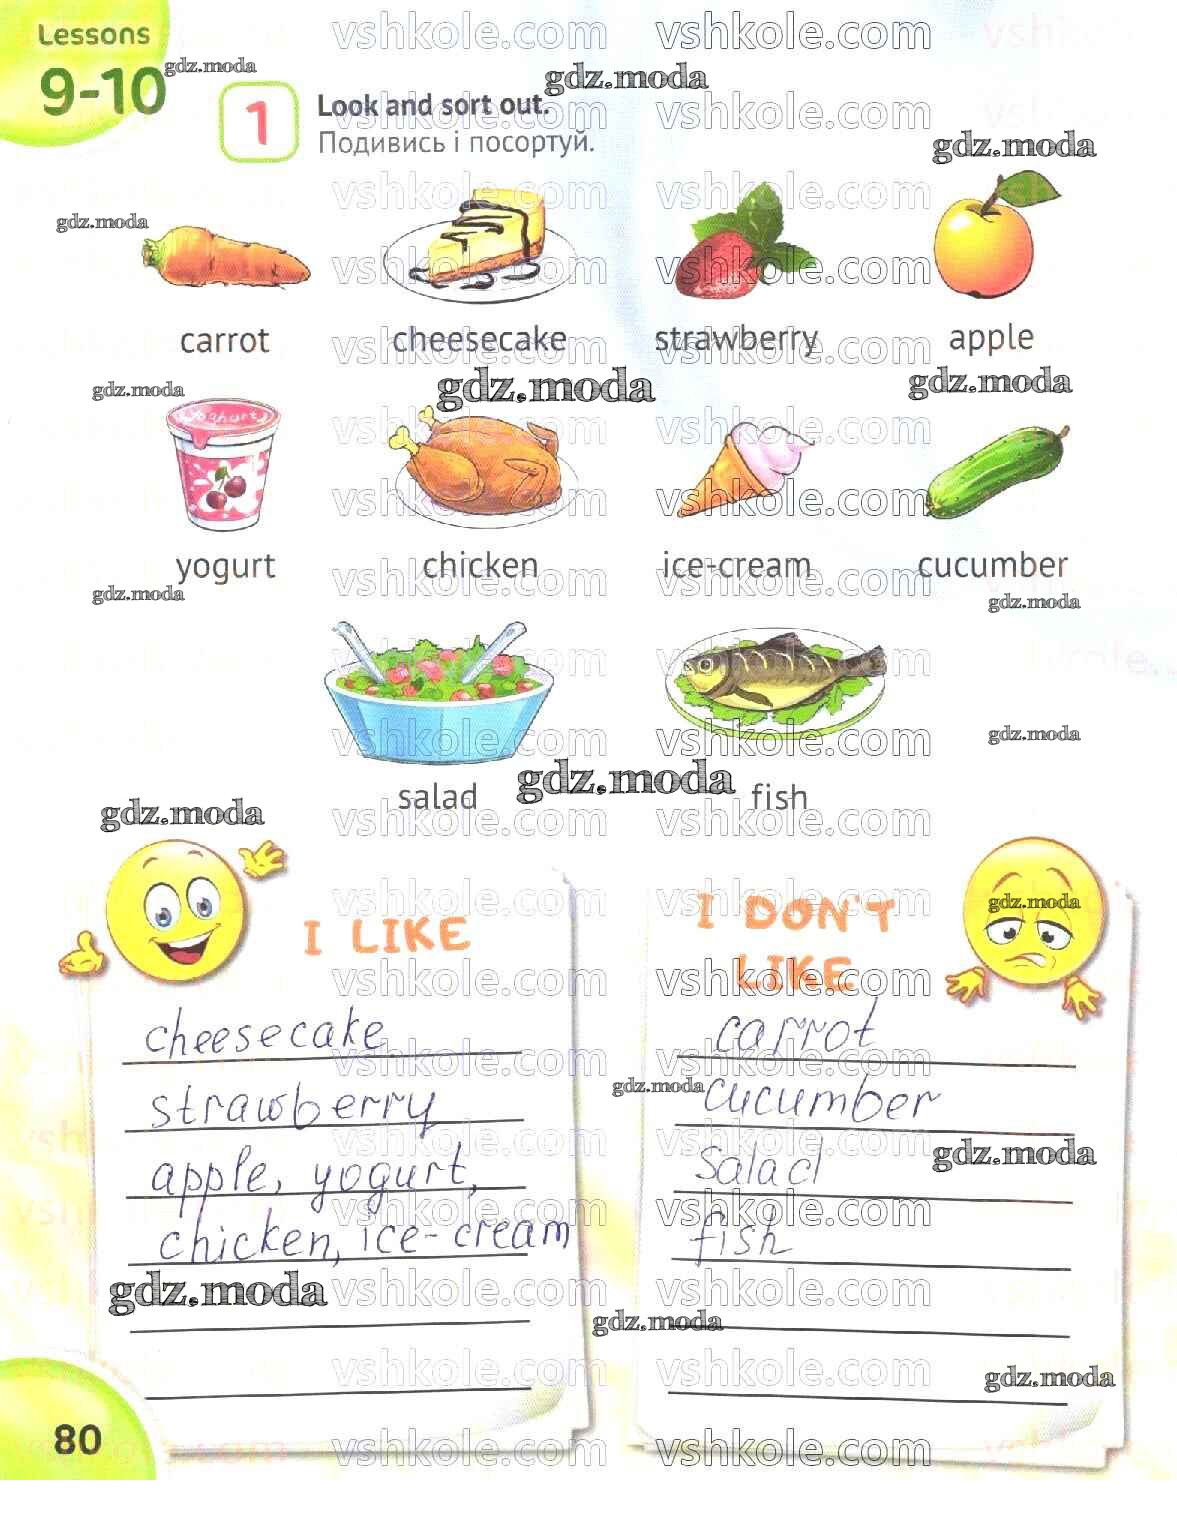 Lessons
9-10
1
Look and sort out.
Подивись і посортуй.
carrot cheesecake strawberry apple
Yoghurt
yogurt chicken ice-cream cucumber
salad fish
I LIKE
cheesecake
strawberry
apple, yogurt,
chicken, ice-cream
I DON'T
LIKE
carrot
cucumber
salad
fish
80
vshkole.com
gdz.moda